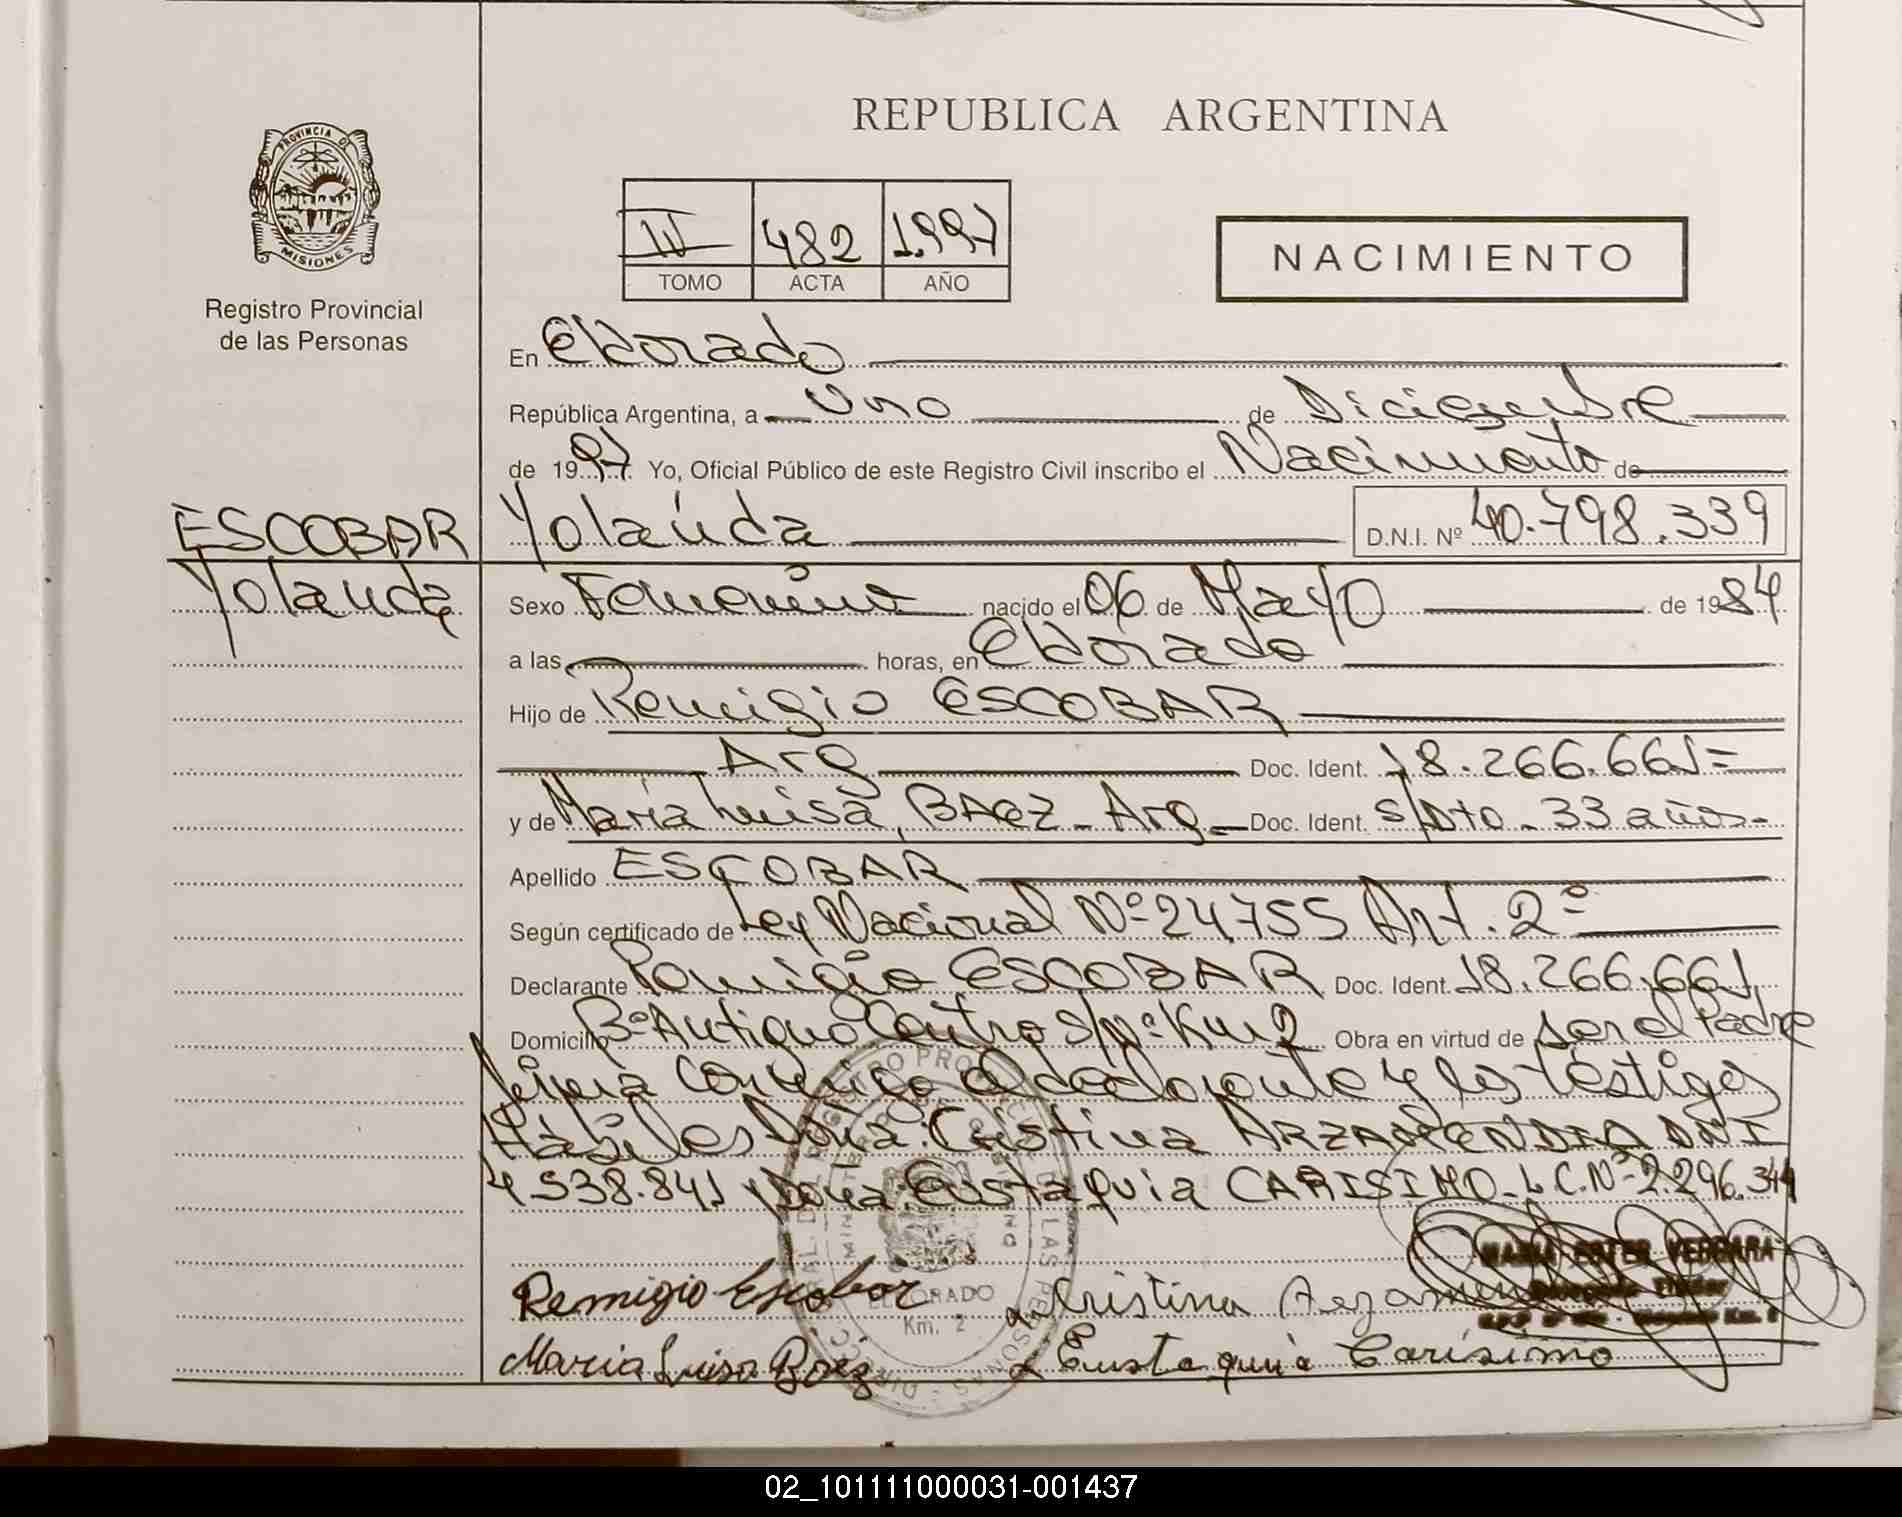 REPUBLICA ARGENTINA
PROVINCIA DE
MISIONES
Registro Provincial
de las Personas
II 482 1.997
TOMO ACTA AÑO
NACIMIENTO
En Eldorado
República Argentina, a Uno de Diciembre
de 1997. Yo, Oficial Público de este Registro Civil inscribo el Nacimiento de
ESCOBAR Yolanda D.N.I. Nº 40.798.339
Yolanda Sexo Femenino nacido el 06 de Mayo de 1984
a las horas, en Eldorado
Hijo de Remigio ESCOBAR
Arg Doc. Ident. 18.266.661=
y de María Luisa, BAEZ - Arg - Doc. Ident. s/Dto - 33 años.-
Apellido ESCOBAR
Según certificado de Ley Nacional Nº 24755 Art. 2º
Declarante Remigio ESCOBAR Doc. Ident. 18.266.661
Domicilio Bº Antiguo Centro S/Nº Km 2 Obra en virtud de ser el Padre
firma conmigo el declarante y los testigos
Hábiles Doña: Cristina ARZAMENDIA DNI
4.538.841 y Doña: Eustaquia CARISIMO - L.C. Nº 2.296.344
MARIA ESTER VERGARA
Remigio Escobar Cristina
ELDORADO
Km. 2
Maria Luisa Báez Eustaquia Carísimo
02_101111000031-001437